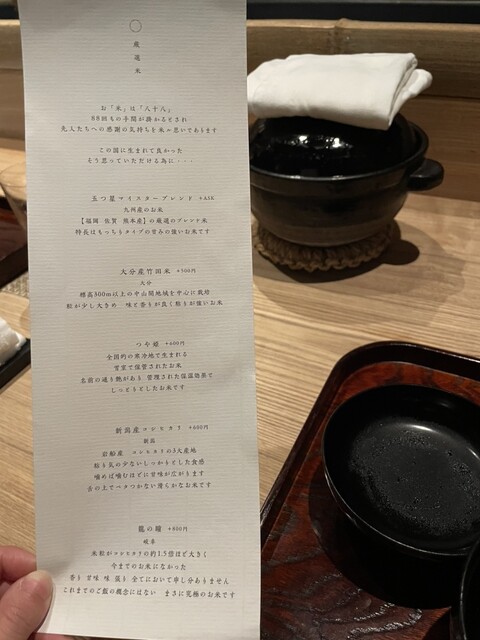 ○
厳
選
米
お「米」は「八十八」
88回もの手間が掛かるとされ
先人たちへの感謝の気持ちを米ゝ思いております
この国に生まれて良かった
そう思っていただける為に・・・
五つ星マイスターブレンド +ASK
九州産のお米
【福岡 佐賀 熊本産】の厳選のブレンド米
特長はもっちりタイプの甘みの強いお米です
大分産竹田米 +500円
大分
標高300m以上の中山間地域を中心に栽培
粒が少し大きめ 味と香りが良く粘りが強いお米
つや姫 +600円
全国的の寒冷地で生まれる
雪室で保管されたお米
名前の通り艶があり 管理された保温効果で
しっとりとしたお米です
新潟産コシヒカリ +600円
新潟
岩船産 コシヒカリの3大産地
粘り気の少ないしっかりとした食感
噛めば噛むほどに甘味が広がります
舌の上でベタつかない滑らかなお米です
龍の瞳 +800円
岐阜
米粒がコシヒカリの約1.5倍ほど大きく
今までのお米になかった
香り 甘味 味 張り 全てにおいて申し分ありません
これまでのご飯の概念にはない まさに究極のお米です